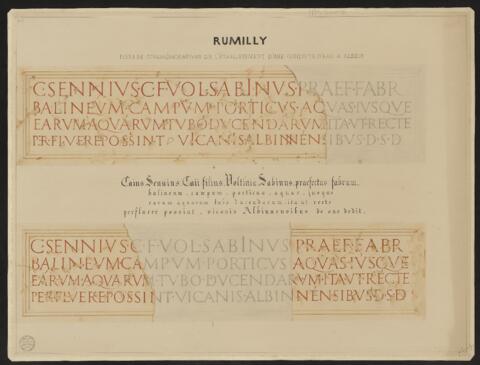 RUMILLY
C·SENNIVS·C·F·VOL·SABINVS PRAEF·FABR
BALINEVM·CAMPVM·PORTICVS·AQVAS·IVSQVE
EARVM·AQVARVM·TVBO·DVCENDARVM·ITAVT·RECTE
PERFLVERE·POSSINT·VICANIS·ALBINNENSIBVS·D·S·D
Caius Sennius, Caii filius, Voltinia, Sabinus, praefectus fabrum,
balineum, campum, porticus, aquas, jusque
earum aquarum tubo ducendarum, ita ut recte
perfluere possint, vicanis Albinnensibus de suo dedit.
C·SENNIVS·C·F·VOL·SABINVS PRAEF·FABR
BALINEVM·CAMPVM·PORTICVS AQVAS·IVSQVE
EARVM·AQVARVM·TVBO·DVCENDARVM·ITAVT·RECTE
PERFLVERE·POSSINT·VICANIS·ALBINNENSIBVS·D·S·D